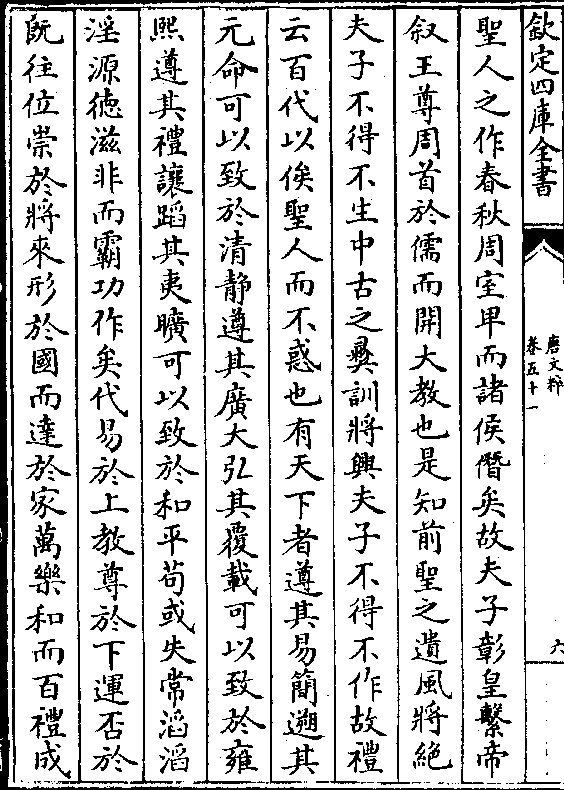 欽定四庫全書
唐文粹
卷五十一
六
聖人之作春秋周室卑而諸侯僭矣故夫子彰皇繫帝
叙王尊周首於儒而開大教也是知前聖之遺風將絶
夫子不得不生中古之彞訓將興夫子不得不作故禮
云百代以俟聖人而不惑也有天下者遵其易簡遡其
元命可以致於清静遵其廣大弘其覆載可以致於雍
熙遵其禮讓蹈其夷曠可以致於和平苟或失常滔滔
淫源徳滋非而霸功作矣代易於上教尊於下運否於
既往位崇於將來形於國而達於家萬樂和而百禮成